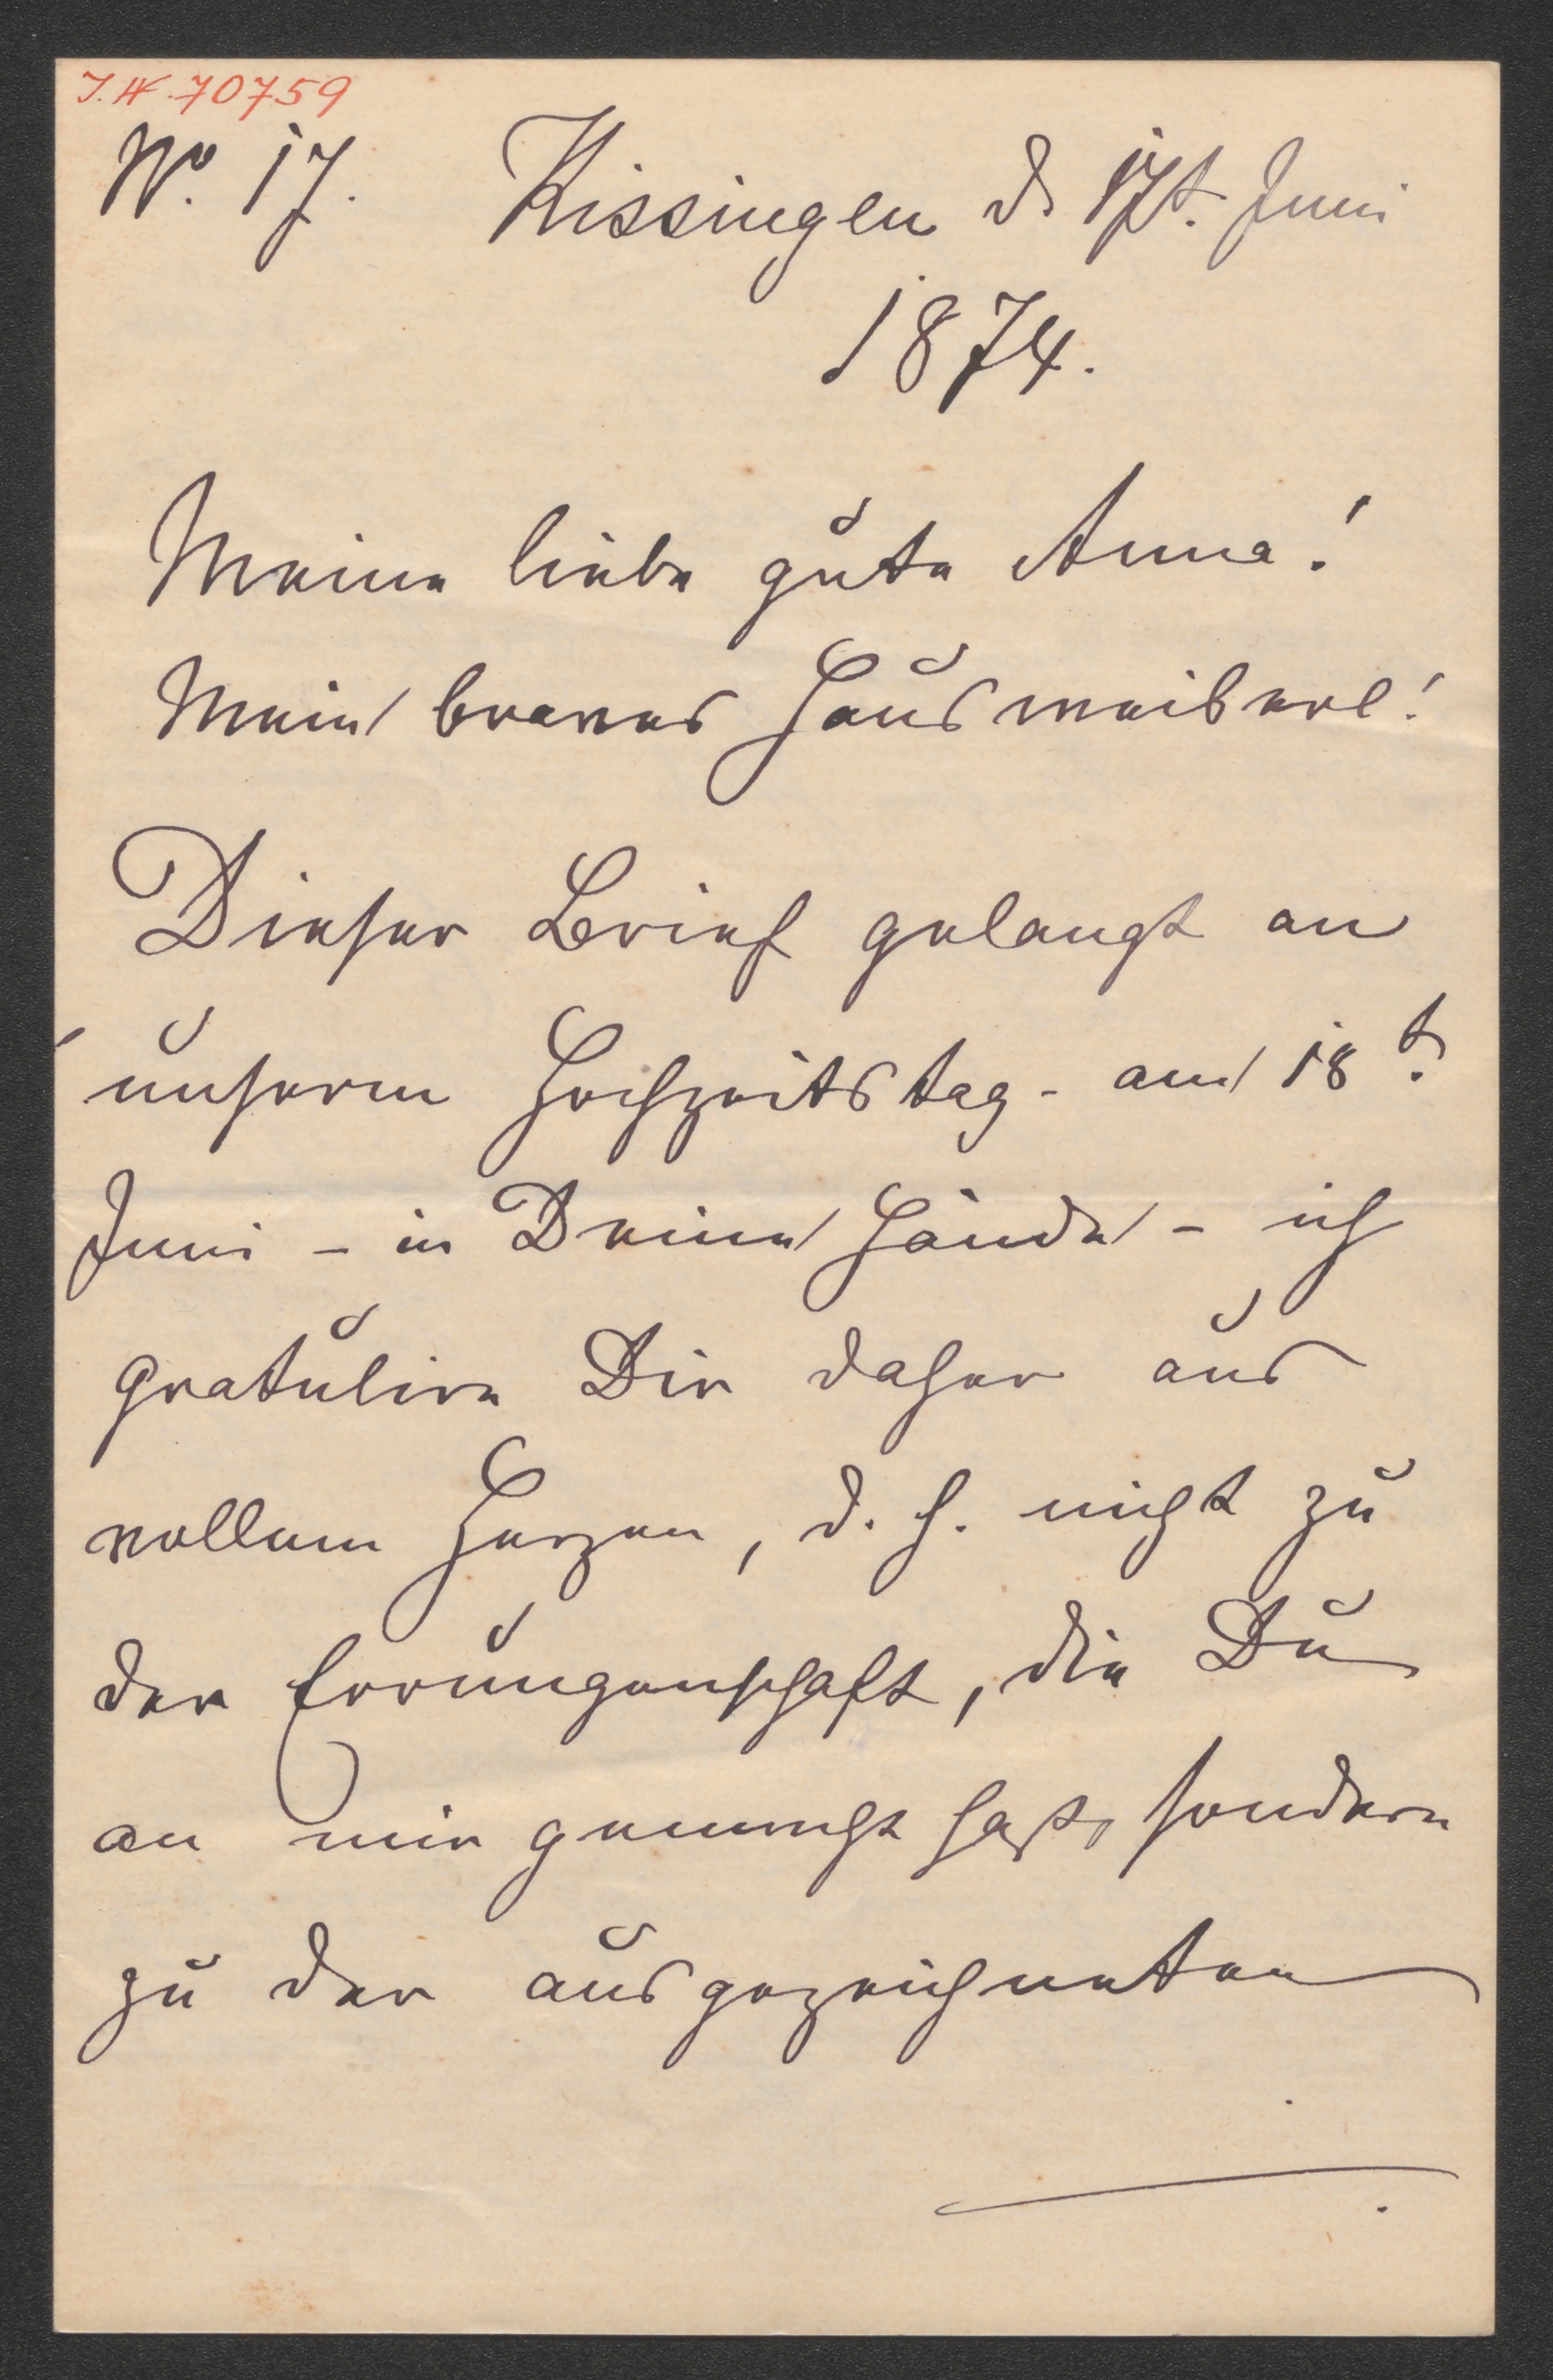 J.N. 70759
No. 17. Kissingen d. 17t. Juni
1874.
Meine liebe gute Anna!
Mein braves Hausweiberl!
Dieser Brief gelangt an
unserm Hochzeitstag - am 18t.
Juni - in Deine Hände - ich
gratulire Dir daher aus
vollem Herzen, d. h. nicht zu
der Errungenschaft, die Du
an mir gemacht hast, sondern
zu der ausgezeichneten